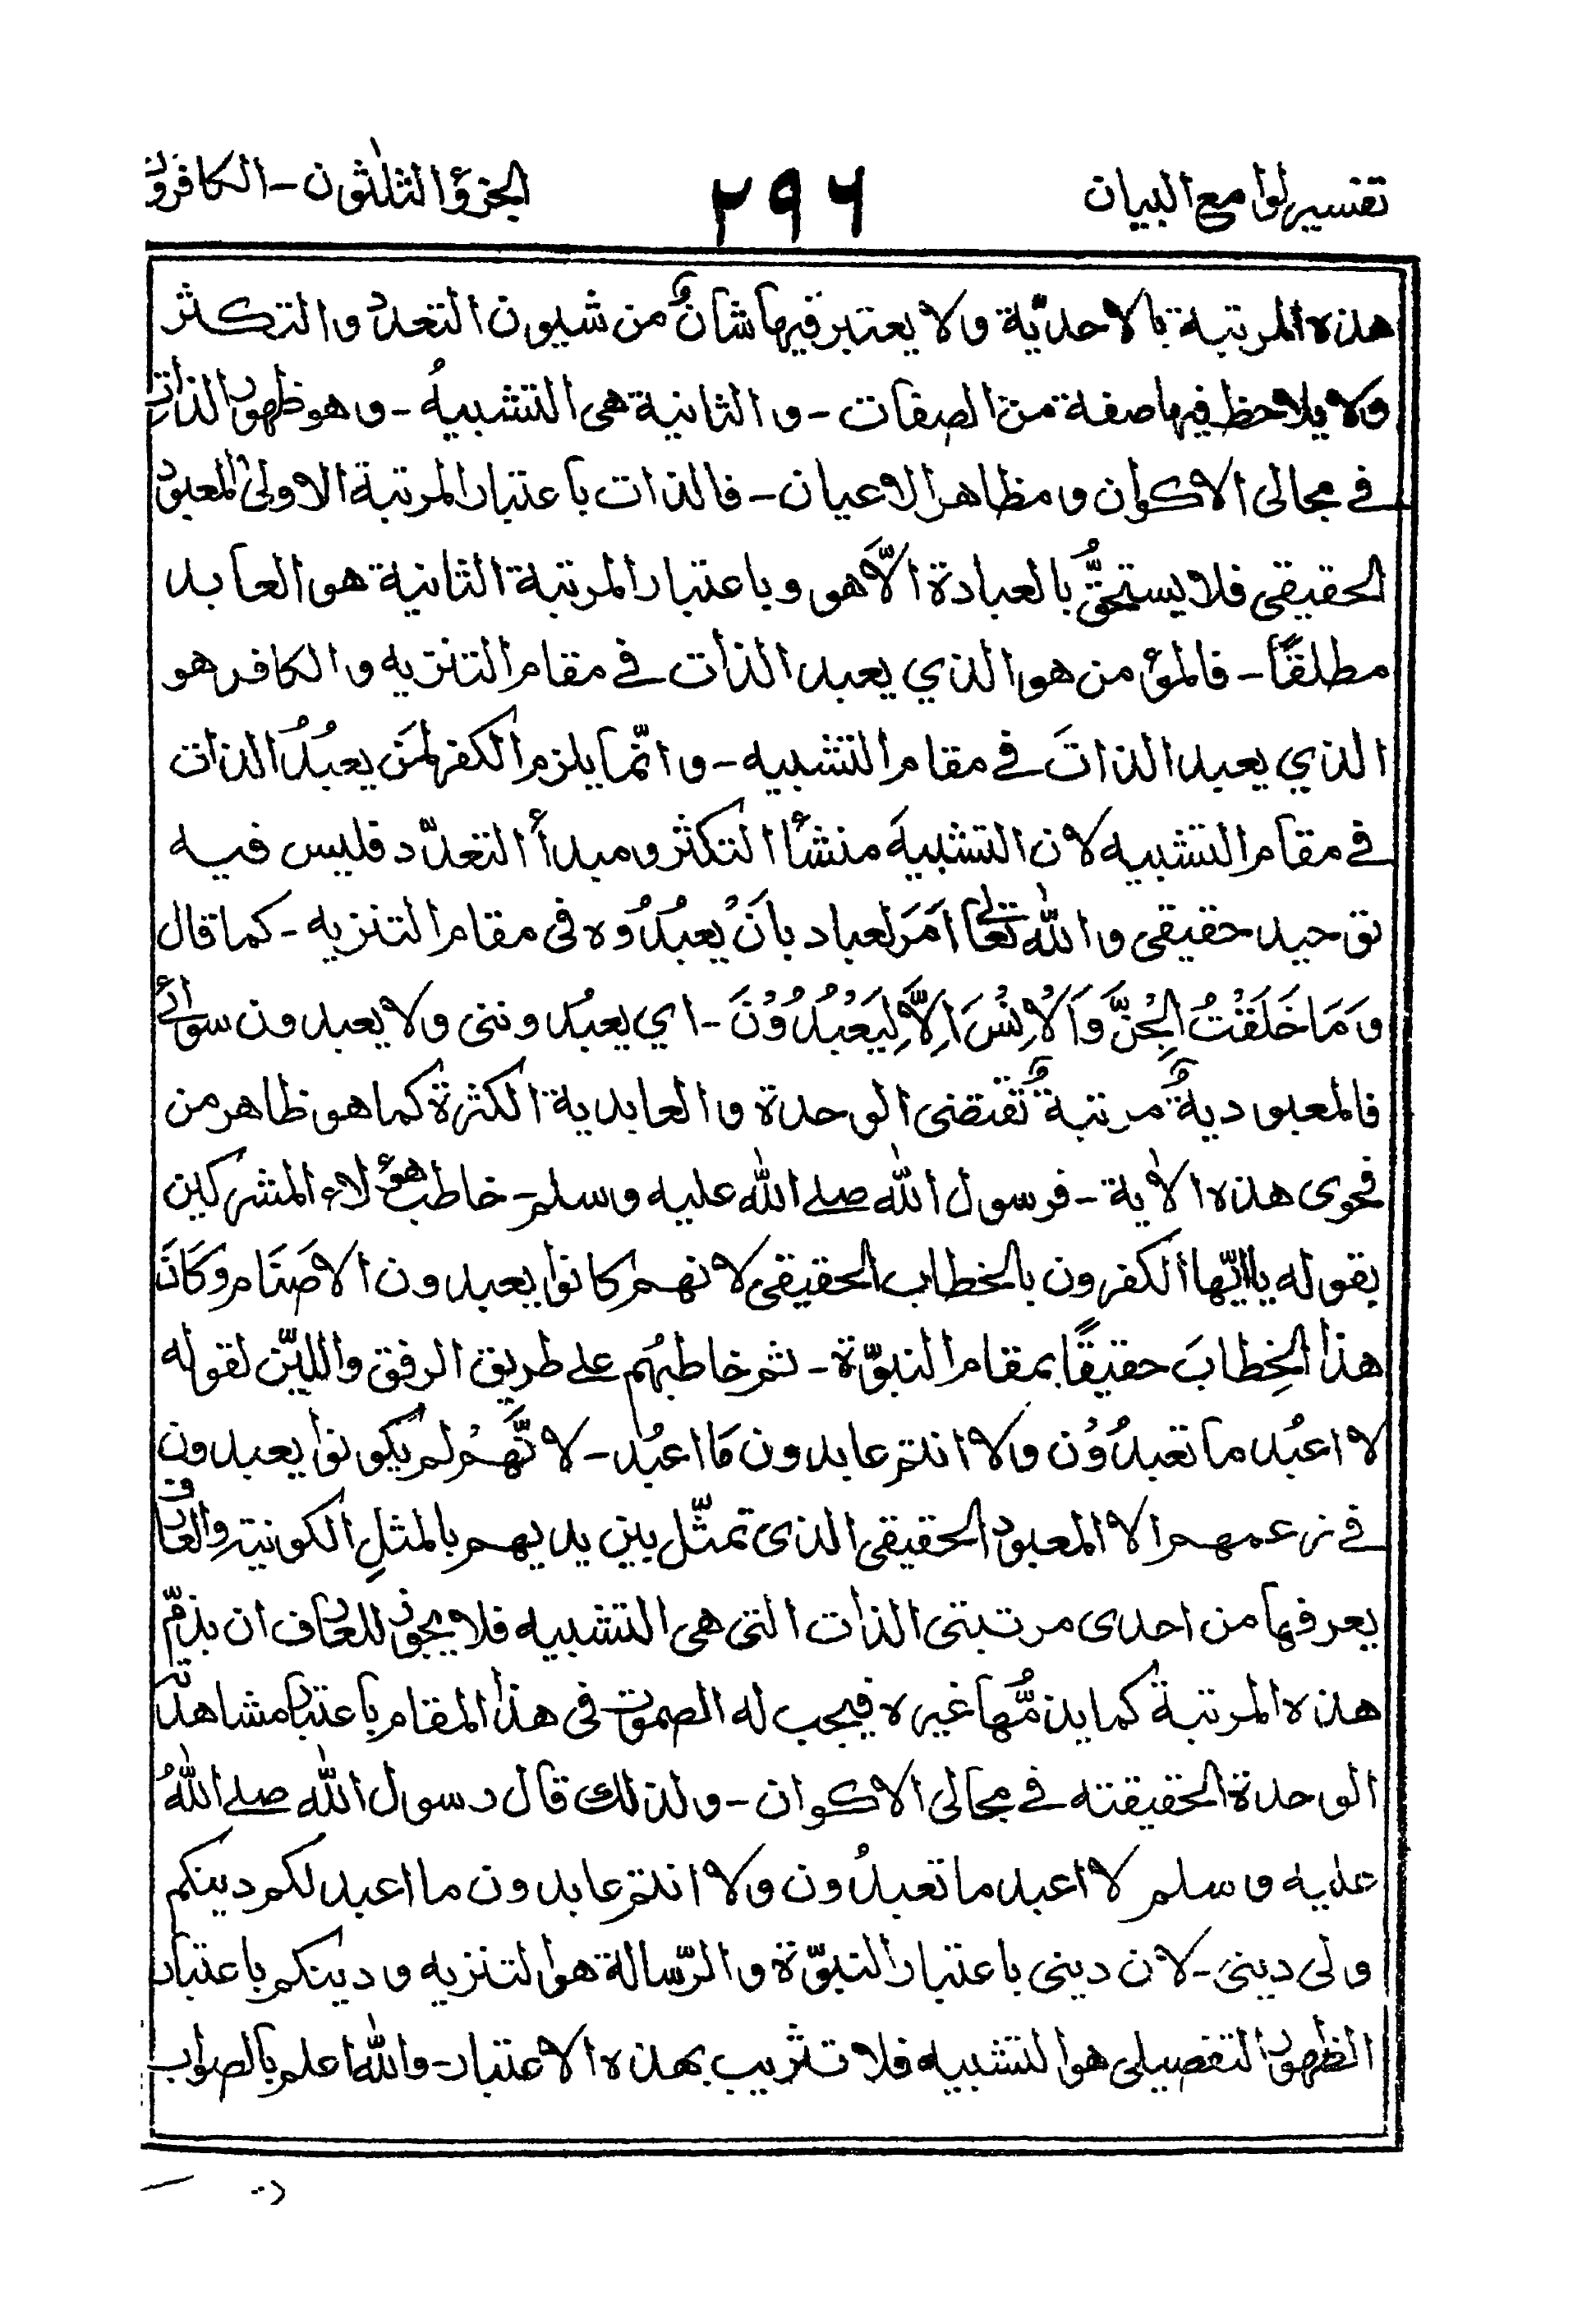 تفسير لوامع البيان ٢٩٦ الجزؤ الثلٰثون - الكافرون
هذه المرتبة بالاحديّة ولا يعتبر فيها شانٌ من شيون التعدد والتكثر
ولا يلاحظ فيها صفة من الصفات - والثانية هى التشبيهُ - وهو ظهور الذات
في مجالى الاكوان ومظاهر الاعيان - فالذات باعتبار المرتبة الاولىٰ المعبود
الحقيقى فلا يستحقُّ بالعبادة الَّا هو وباعتبار المرتبة الثانية هو العابد
مطلقًا - فالمؤمن هو الذي يعبد الذات في مقام التنزيه والكافر هو
الذي يعبد الذاتَ في مقام التشبيه - وانّما يلزم الكفر لمَن يعبُدُ الذات
في مقام التشبيه لان التشبيهَ منشأ التكثر ومبدأ التعدّد فليس فيه
توحيد حقيقى والله تعالىٰ امَرَ لعباد بانْ يعبُدُوه فى مقام التنزيه - كما قال
وَمَا خَلَقْتُ الْجِنَّ وَالْاِنْسَ اِلَّا لِيَعْبُدُوْنَ - اي يعبُدوننى ولا يعبدون سوائي
فالمعبوديةُ مرتبةٌ تقتضى الوحدة والعابدية الكثرة كما هو ظاهر من
فحوى هذه الاٰية - فرسول الله صلے الله عليه وسلم - خاطب هؤلاء المشركين
بقوله يا ايّها الكفرون بالخطاب الحقيقى لانهم كانوا يعبدون الاصنَام وكَانَ
هذا الخِطابَ حقيقًا بمقام النبوّة - ثم خاطبهُم على طريق الرفق واللّين لقوله
لا اعبُد ما تعبدُوْن ولا انتم عابدون مَا اعبُد - لانّهُمْ لم يكونوا يعبدون
في زعمهم الا المعبود الحقيقى الذى تمثّل بين يديهم بالمثلِ الكونية والعارف
يعرفها من احدى مرتبتى الذات التى هى التشبيه فلا يجوز للعارف ان يذمّ
هذه المرتبة كما يذمُّها غيره فيجب له الصموت فى هذا المقام باعتبار مشاهدة
الوحدة الحقيقته في مجالى الاكوان - ولذلك قال رسول الله صلے اللهُ
عليه وسلم لا اعبد ما تعبدُون ولا انتم عابدون ما اعبد لكم دينكم
ولى دينى - لان دينى باعتبار النبوّة والرّسالة هو التنزيه ودينكم باعتبار
الظهور التفصيلى هو التشبيه فلا تثريب بهذه الاعتبار - والله اعلم بالصواب